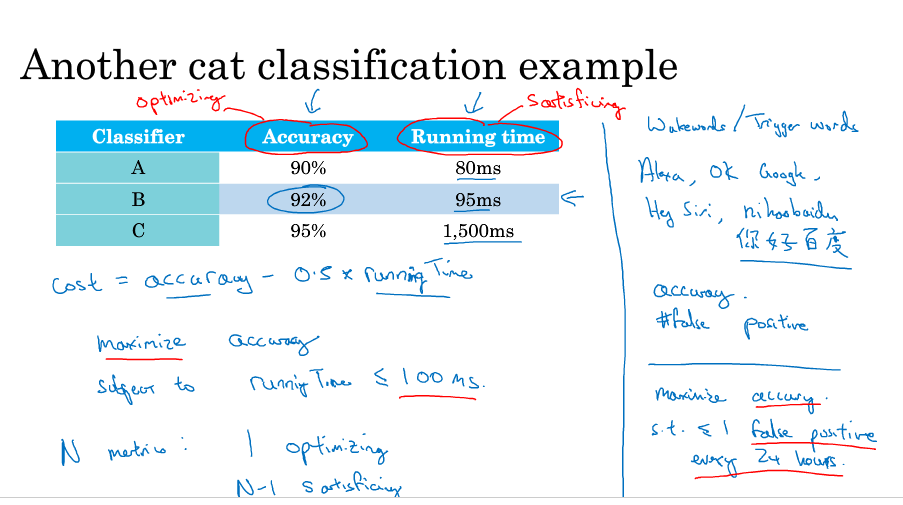 Another cat classification example
optimizing
Satisficing
Classifier Accuracy Running time
A 90% 80ms
B 92% 95ms
C 95% 1,500ms
Cost = accuracy - 0.5 x running Time
maximize accuracy
subject to running Time ≤ 100 ms.
N metrics: 1 optimizing
N-1 satisficing
Wakewords / Trigger words
Alexa, OK Google,
Hey Siri, nihaobaidu
你好百度
accuracy.
#false positive
maximize accuracy.
s.t. ≤ 1 false positive
every 24 hours.